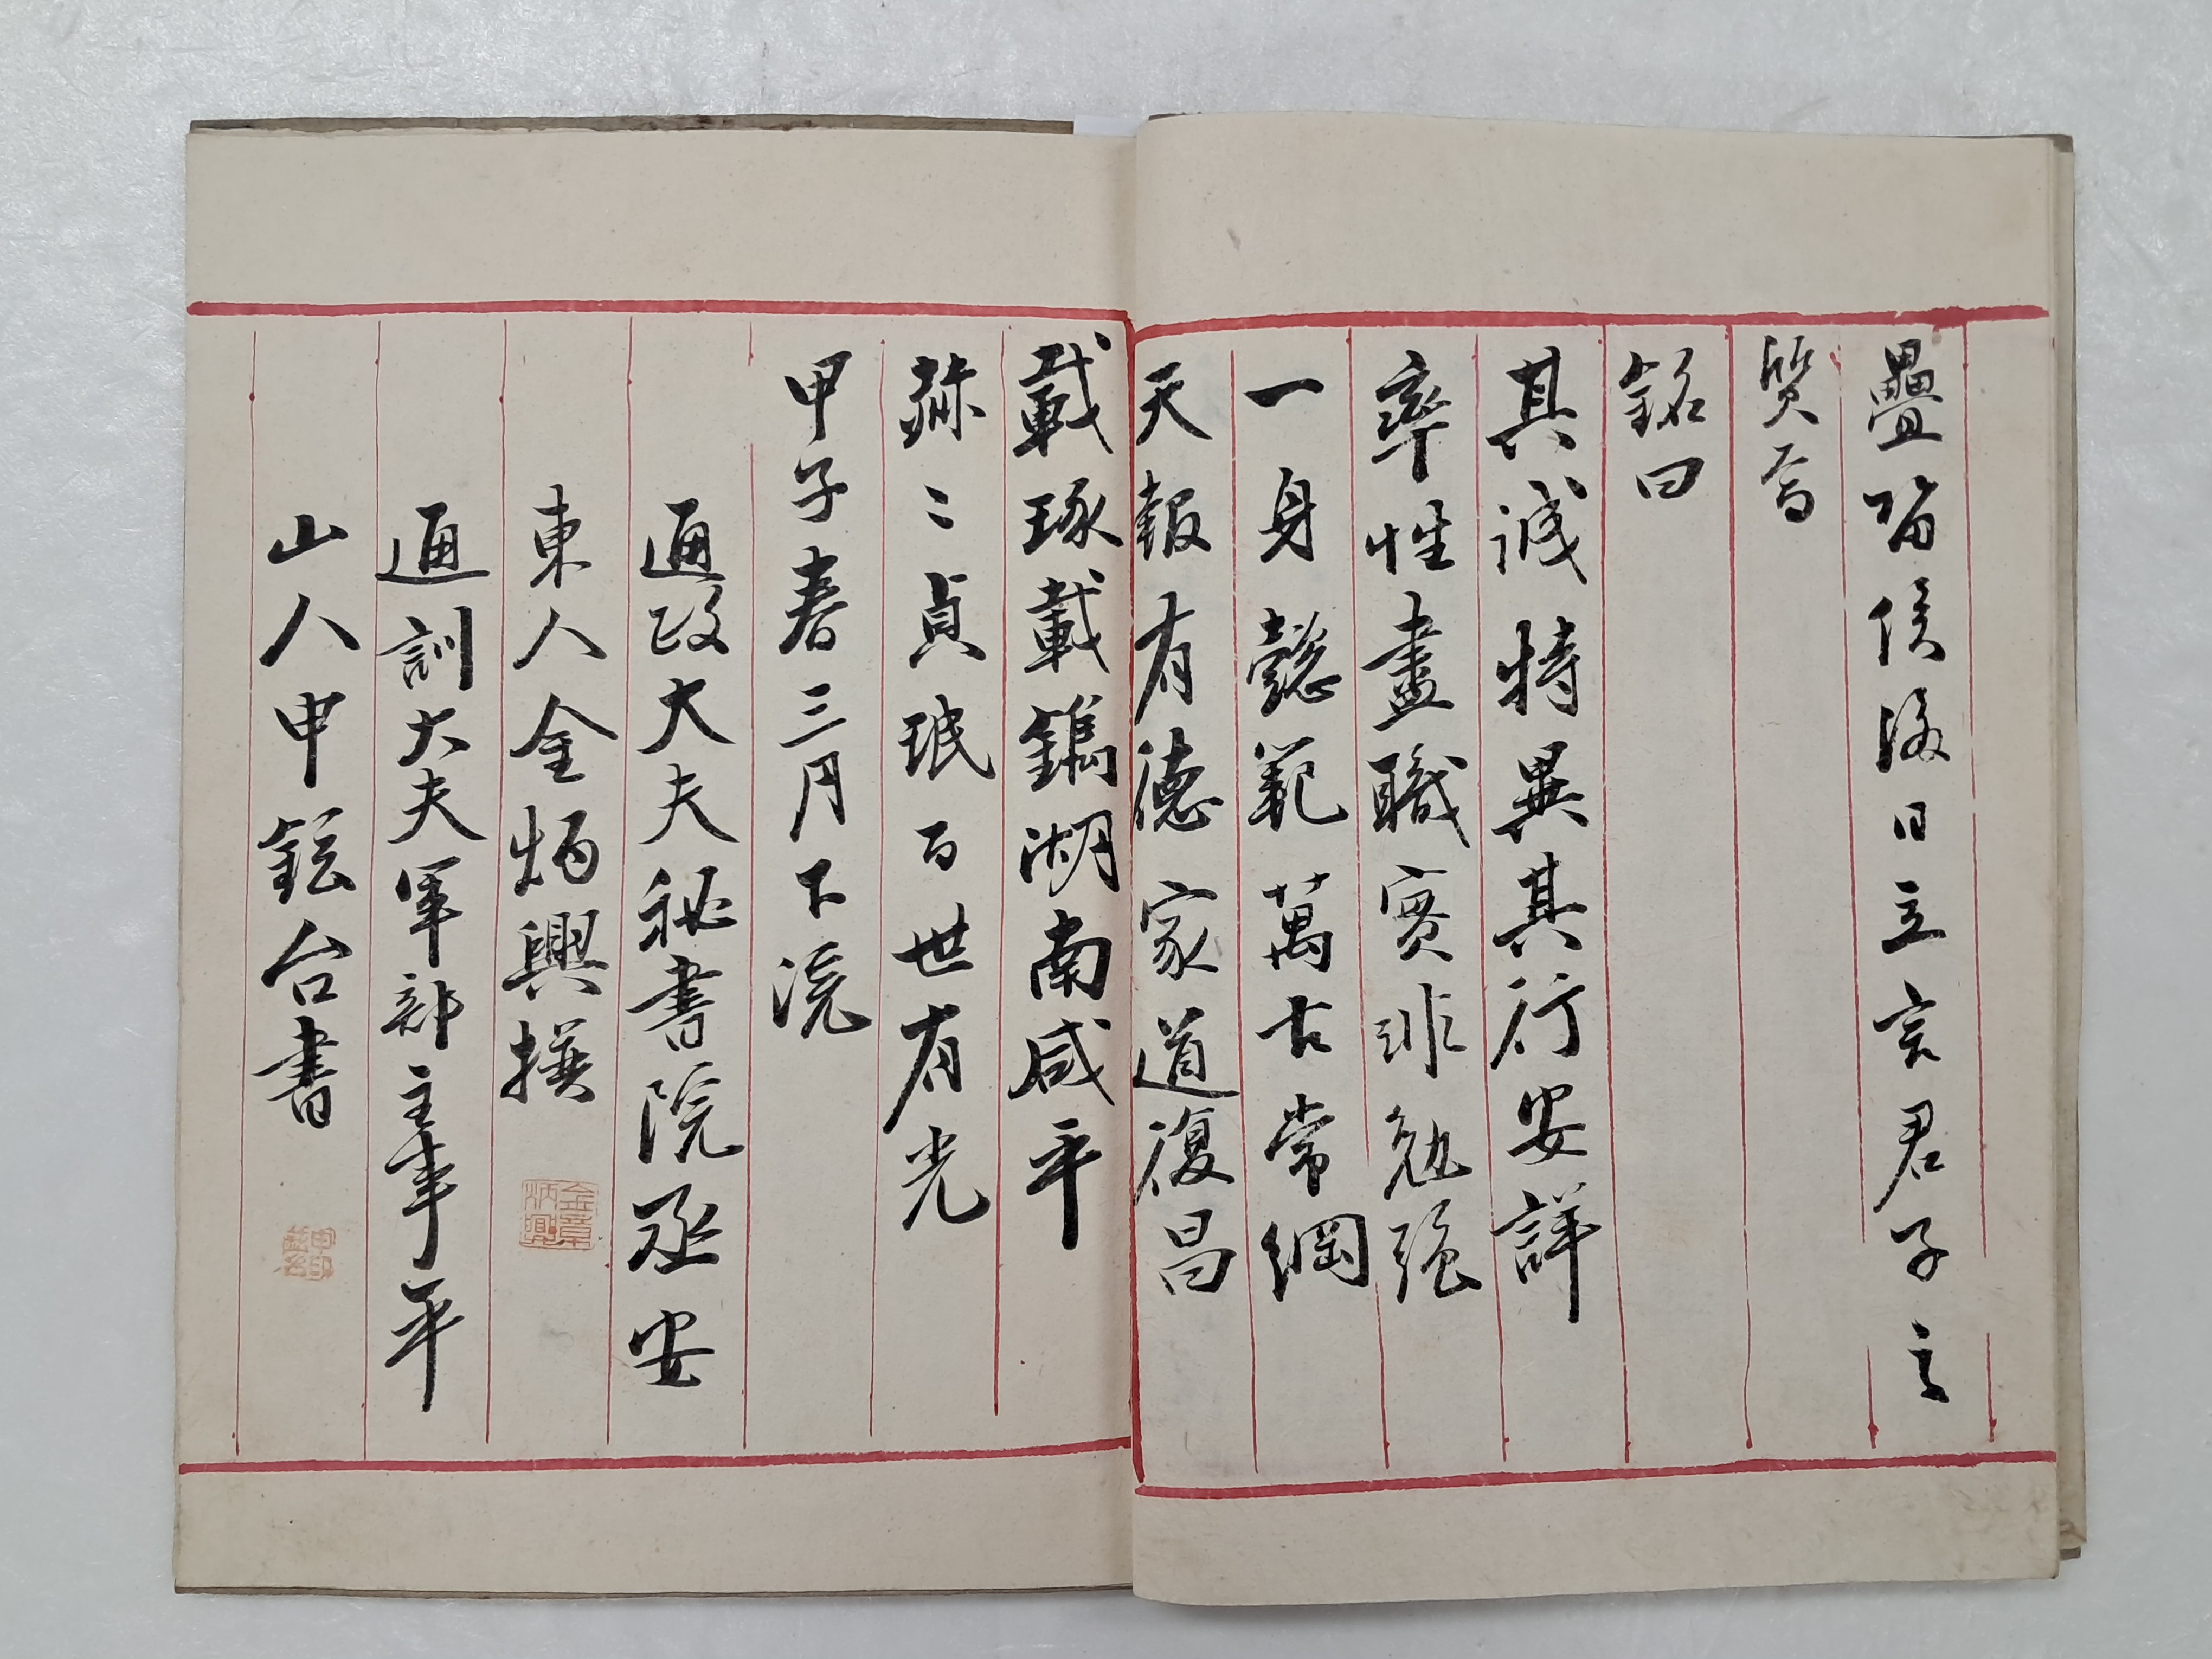 疊留俟後日立言君子之
質焉
銘曰
其誠特異其行安詳
率性盡職實非勉強
一身懿範萬古常綱
天報有德家道復昌
載琢載鐫湖南咸平
赫〻貞珉百世有光
甲子春三月下浣
通政大夫秘書院丞安
東人金炳興撰
金章炳興
通訓大夫軍部主事平
山人申鉉台書